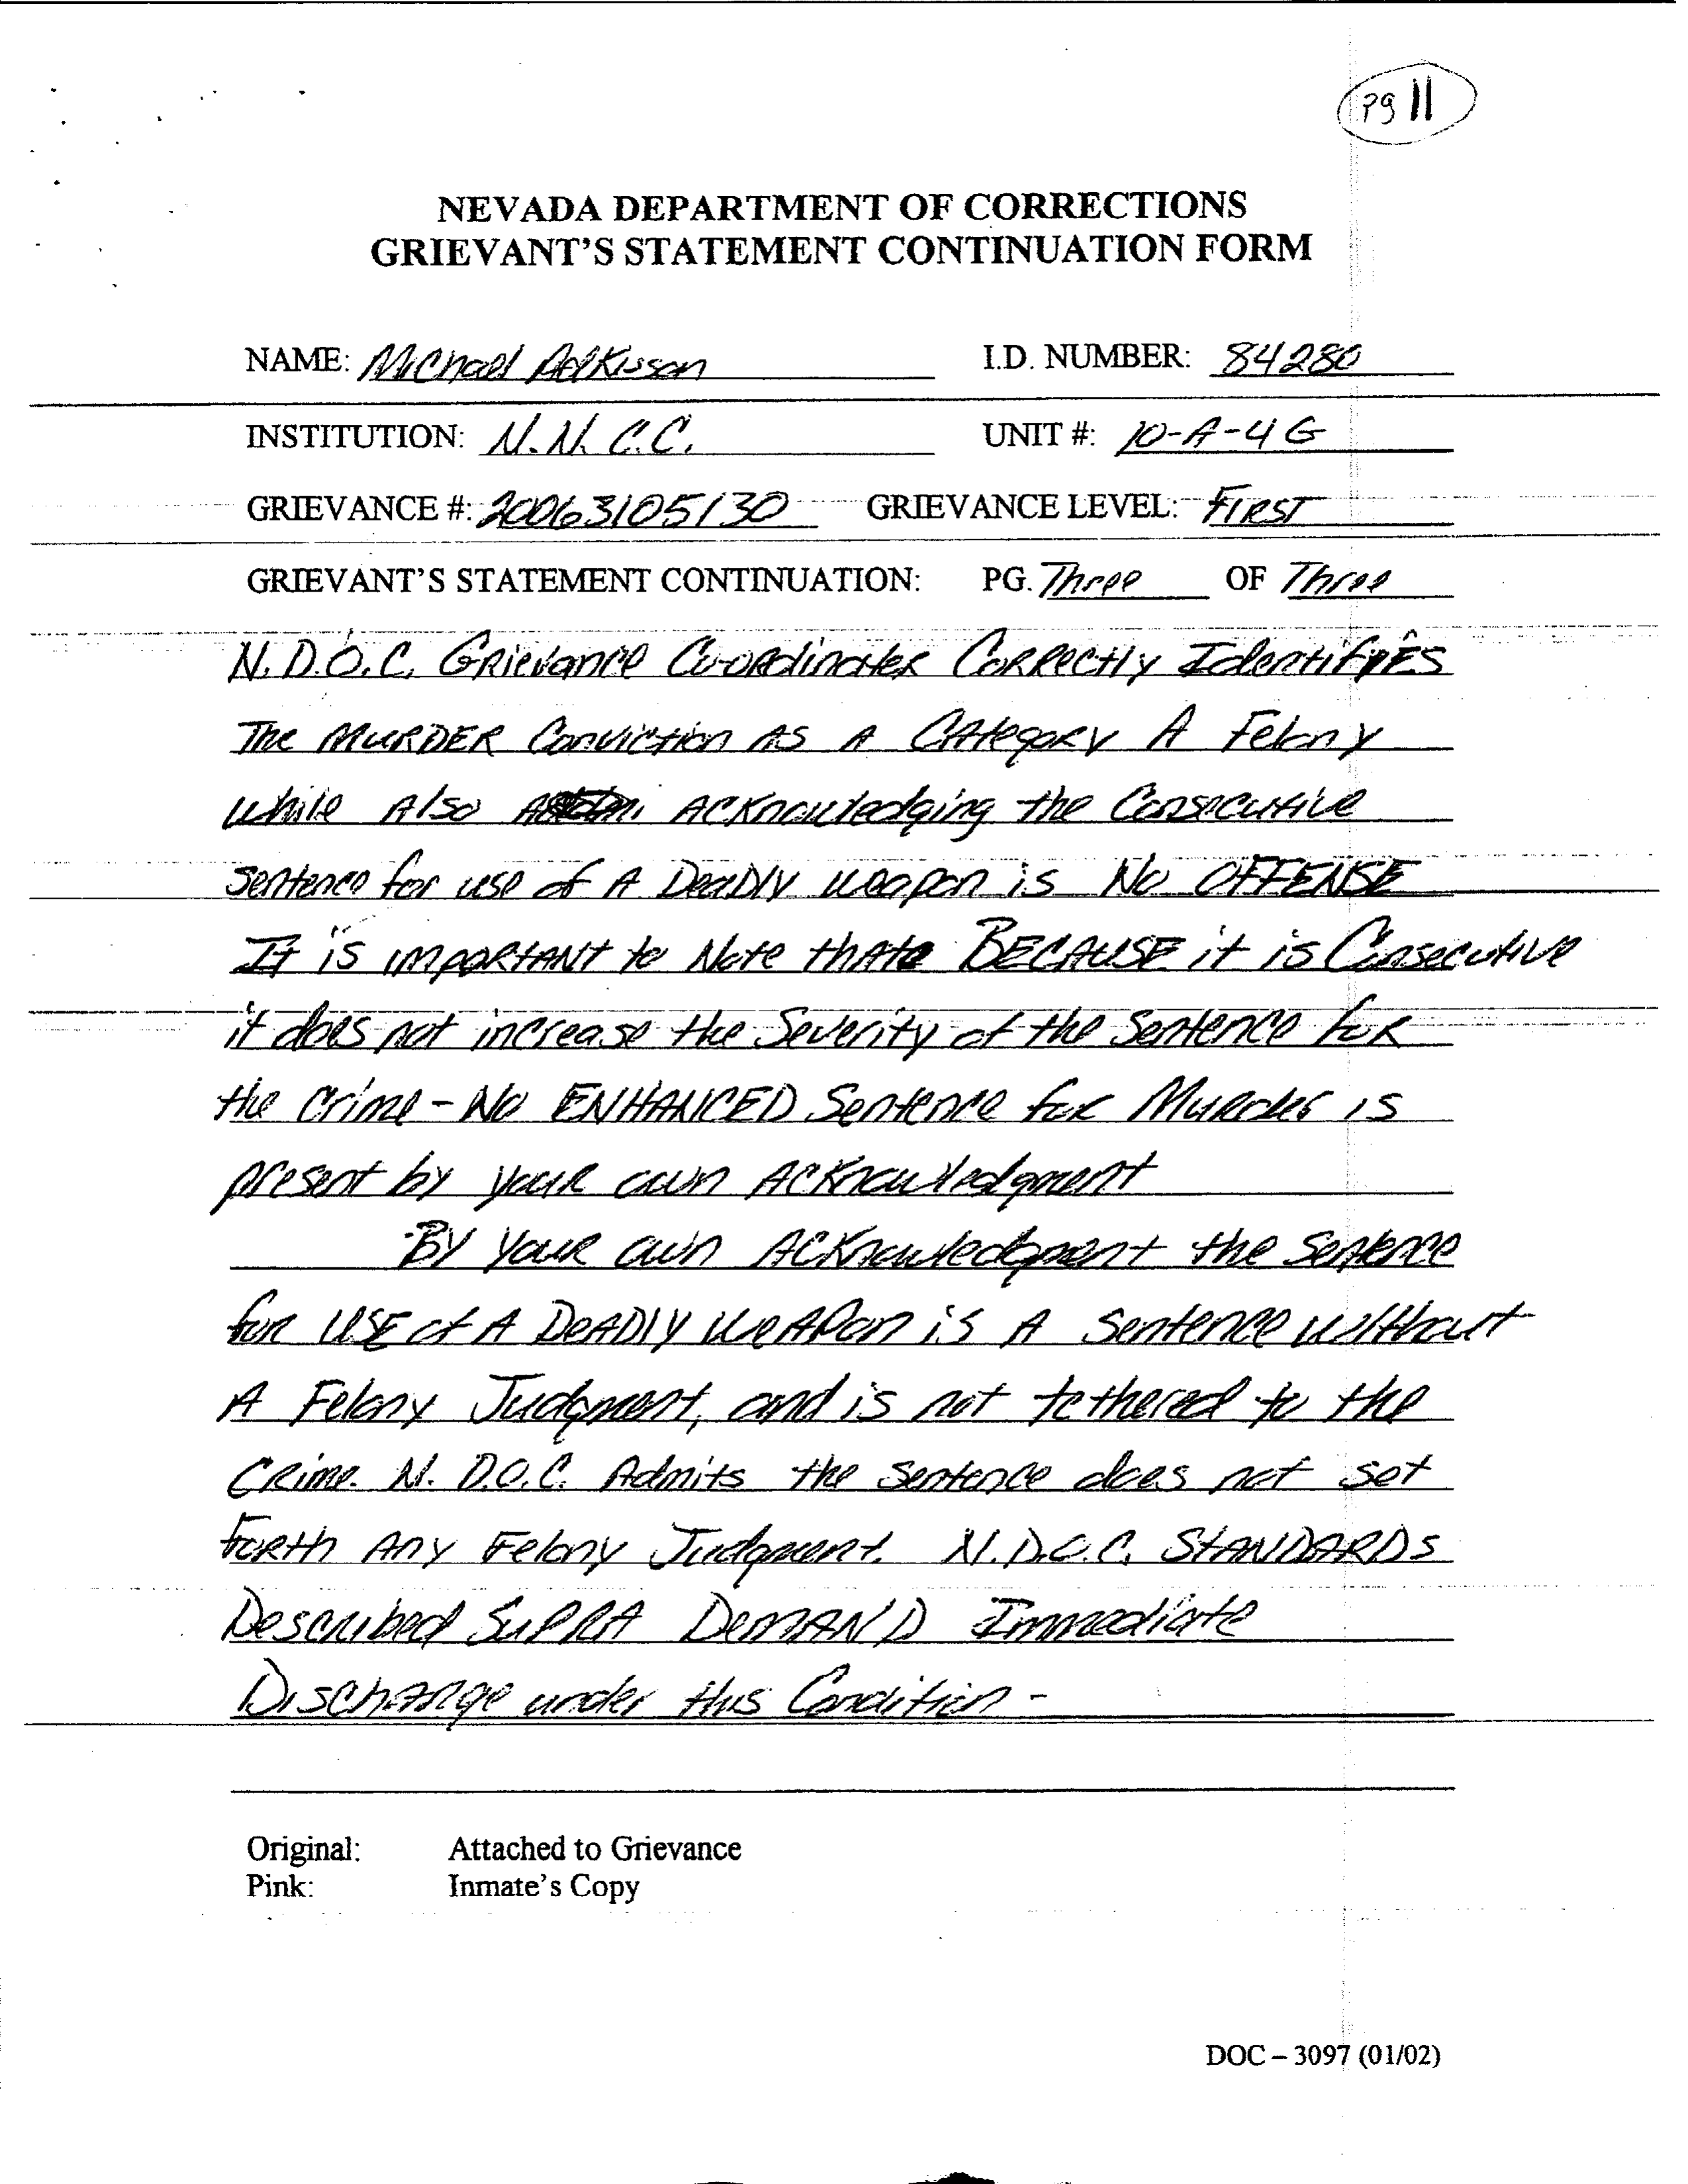 pg 11
NEVADA DEPARTMENT OF CORRECTIONS
GRIEVANT'S STATEMENT CONTINUATION FORM
NAME: Michael Adkisson I.D. NUMBER: 84280
INSTITUTION: N.N.C.C. UNIT #: 10-A-4G
GRIEVANCE #: 20063105130 GRIEVANCE LEVEL: FIRST
GRIEVANT'S STATEMENT CONTINUATION: PG. Three OF Three
N.D.O.C. Grievance Co-ordinater Correctly Identifies
The MURDER Conviction AS A CAtegory A Felony
while Also Acknowledging the Consecutive
sentence for use of A DeaDly weapon is No OFFENSE
It is impORTANT to Note thAt BECAUSE it is Consecutive
it does not increase the Severity of the Sentence for
the Crime - No ENHANCED Sentence for Murder is
present by your own Acknowledgment
By your own Acknowledgment the Sentence
for USE of A DeADly WeAPon is A Sentence without
A Felony Judgment, and is not tethered to the
Crime. N.D.O.C. Admits the Sentence does not set
Forth Any Felony Judgment. N.D.O.C. STANDARDS
Described SuPRA DemAND Immediate
Discharge under this Condition -
Original: Attached to Grievance
Pink: Inmate's Copy
DOC – 3097 (01/02)